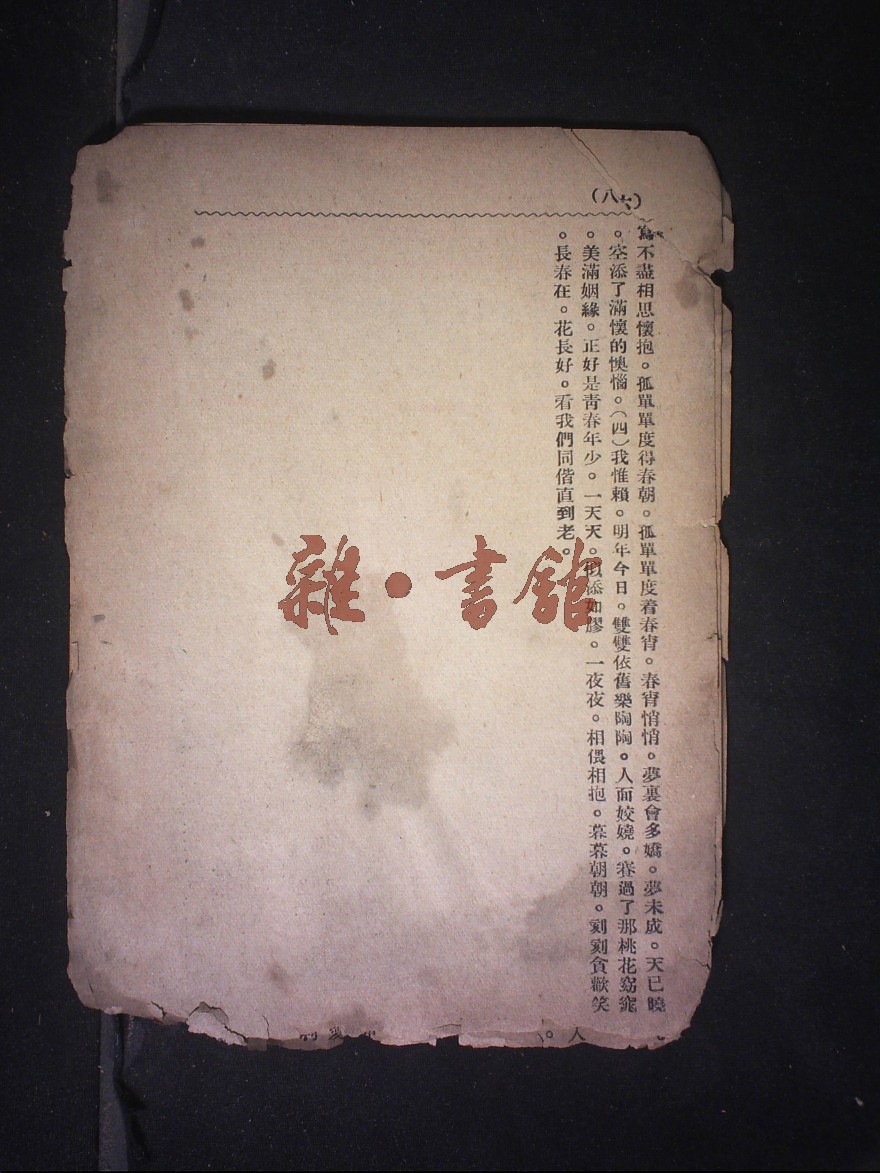 (八六)
寫不盡相思懷抱。孤單單度得春朝。孤單單度着春宵。春宵悄悄。夢裏會多嬌。夢未成。天已曉
。空添了滿懷的懊惱。(四)我惟賴。明年今日。雙雙依舊樂陶陶。人面姣嬈。賽過了那桃花窈窕
。美滿姻緣。正好是青春年少。一天天。似添如膠。一夜夜。相偎相抱。暮暮朝朝。刻刻貪歡笑
。長春在。花長好。看我們同偕直到老。
雜·書館
人。